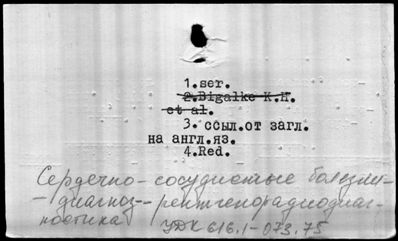 1.ser.
2.Bigalke K.H.
et al.
3. ссыл.от загл.
на англ.яз.
4.Red.
Сердечно-сосудистые болезни-
-диагноз--рентгенорадиодиаг-
ностика УДК 616.1-073.75